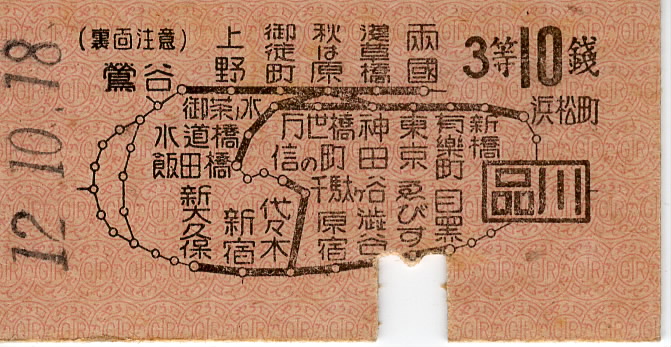 12.10.18
(裏面注意)
鶯谷
上野
御徒町
秋は原
淺草橋
兩國
3等10錢
浜松町
御茶ノ水
水道橋
飯田橋
万世橋
神田
東京
有樂町
新橋
信の町
千駄ヶ谷
代々木
新宿
新大久保
原宿
澁谷
ゑびす
目黒
品川